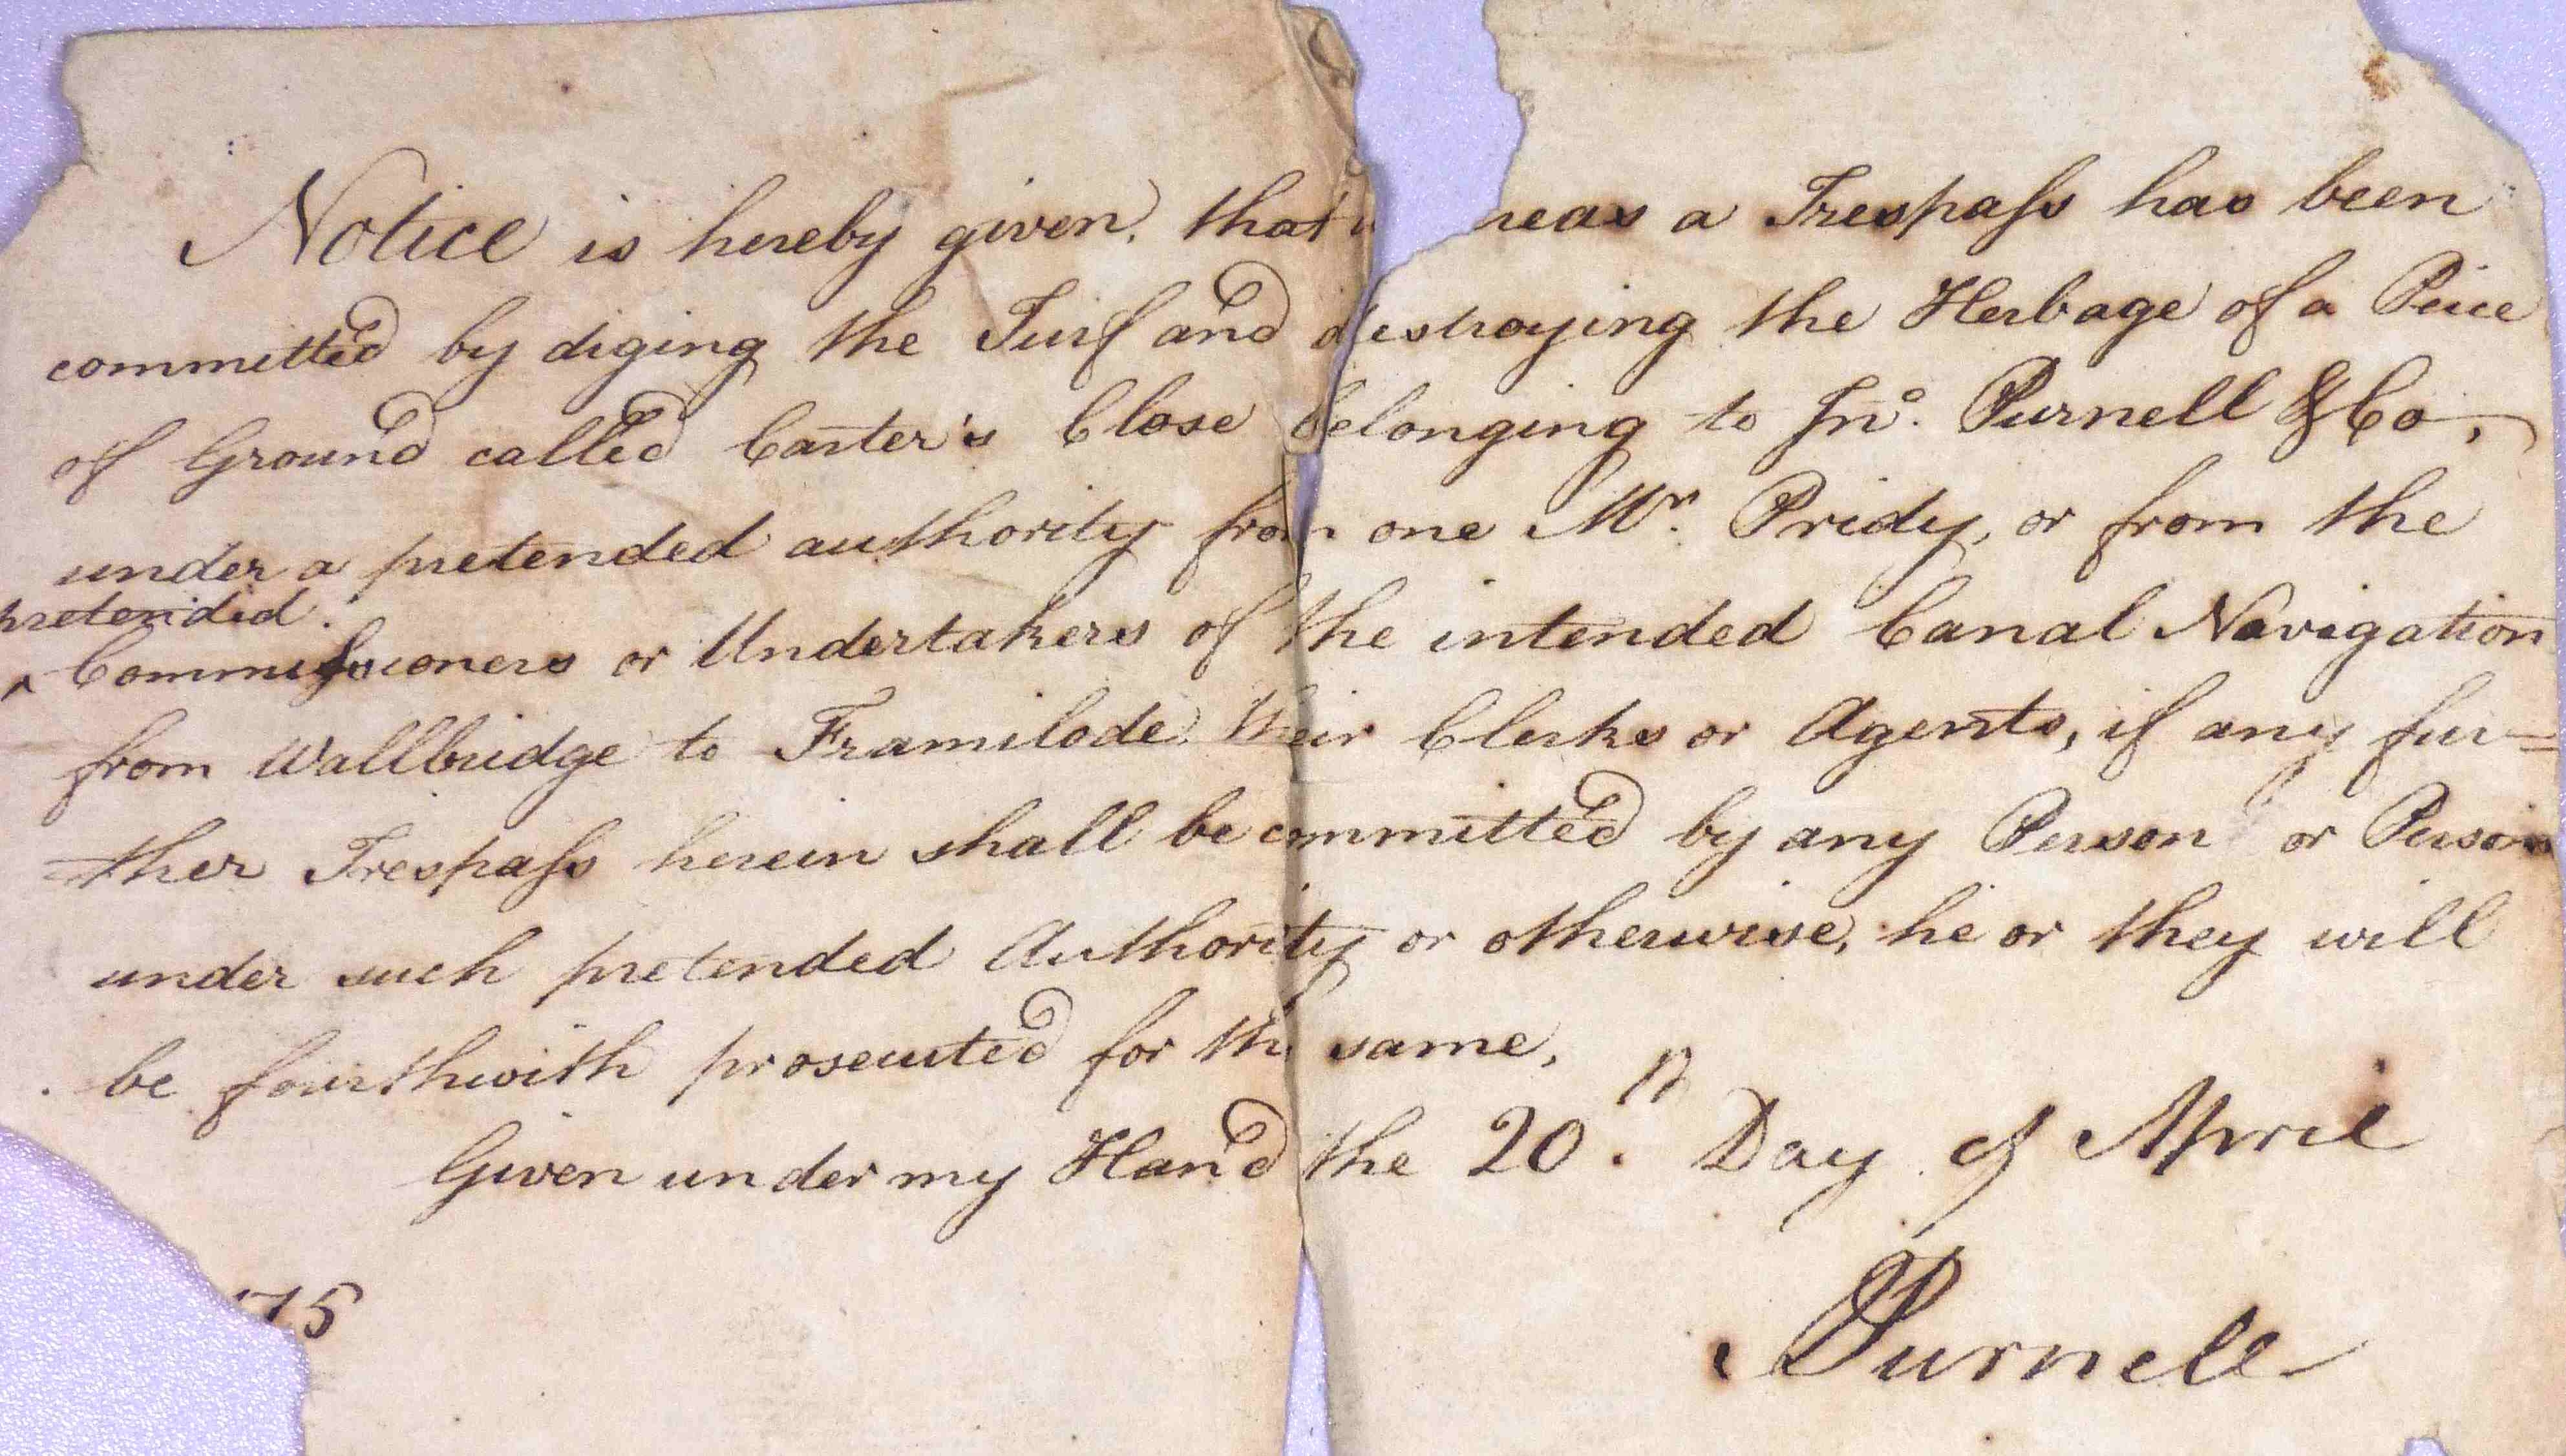 Notice is hereby given, that w reas a Trespass has been
committed by diging the Turf and destroying the Herbage of a Peice
of Ground called Carter's Close belonging to Jno. Purnell & Co,
under a pretended authority from one Mr. Pridy, or from the
pretended.
^ Commissioners or Undertakers of the intended Canal Navigation
from Wallbridge to Framilode, their Clerks or Agents, if any fur=
=ther Trespass herein shall be committed by any Person or Persons
under such pretended Authority or otherwise, he or they will
be fourthwith prosecuted for the same,
Given under my Hand the 20th. Day of April
75
Purnell